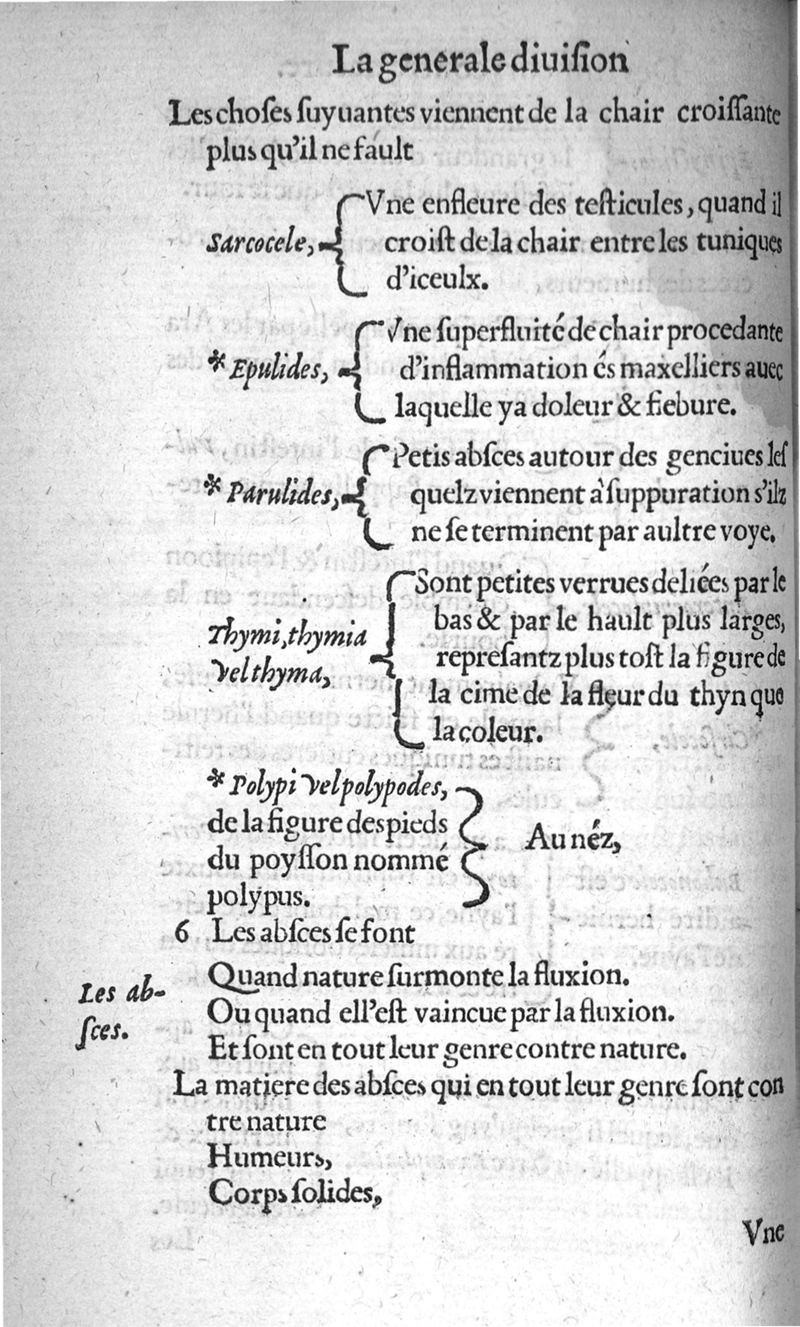 La generale diuiſion
Les choſes ſuyuantes viennent de la chair croiſſante
plus qu'il ne fault
Vne enfleure des teſticules, quand il
Sarcocele, croiſt de la chair entre les tuniques
d'iceulx.
Vne ſuperfluité de chair procedante
* Epulides, d'inflammation és maxelliers auec
laquelle ya doleur & fiebure.
Petis abſces autour des genciues leſ
* Parulides, quelz viennent à ſuppuration s'ilz
ne ſe terminent par aultre voye.
Sont petites verrues deliées par le
bas & par le hault plus larges,
Thymi, thymia repreſantz plus toſt la figure de
vel thyma, la cime de la fleur du thyn que
la coleur.
* Polypi vel polypodes,
de la figure des pieds
Au néz,
du poyſſon nommé
polypus.
6 Les abſces ſe font
Les ab- Quand nature ſurmonte la fluxion.
ſces. Ou quand ell'eſt vaincue par la fluxion.
Et ſont en tout leur genre contre nature.
La matiere des abſces qui en tout leur genre ſont con
tre nature
Humeurs,
Corps ſolides,
Vne